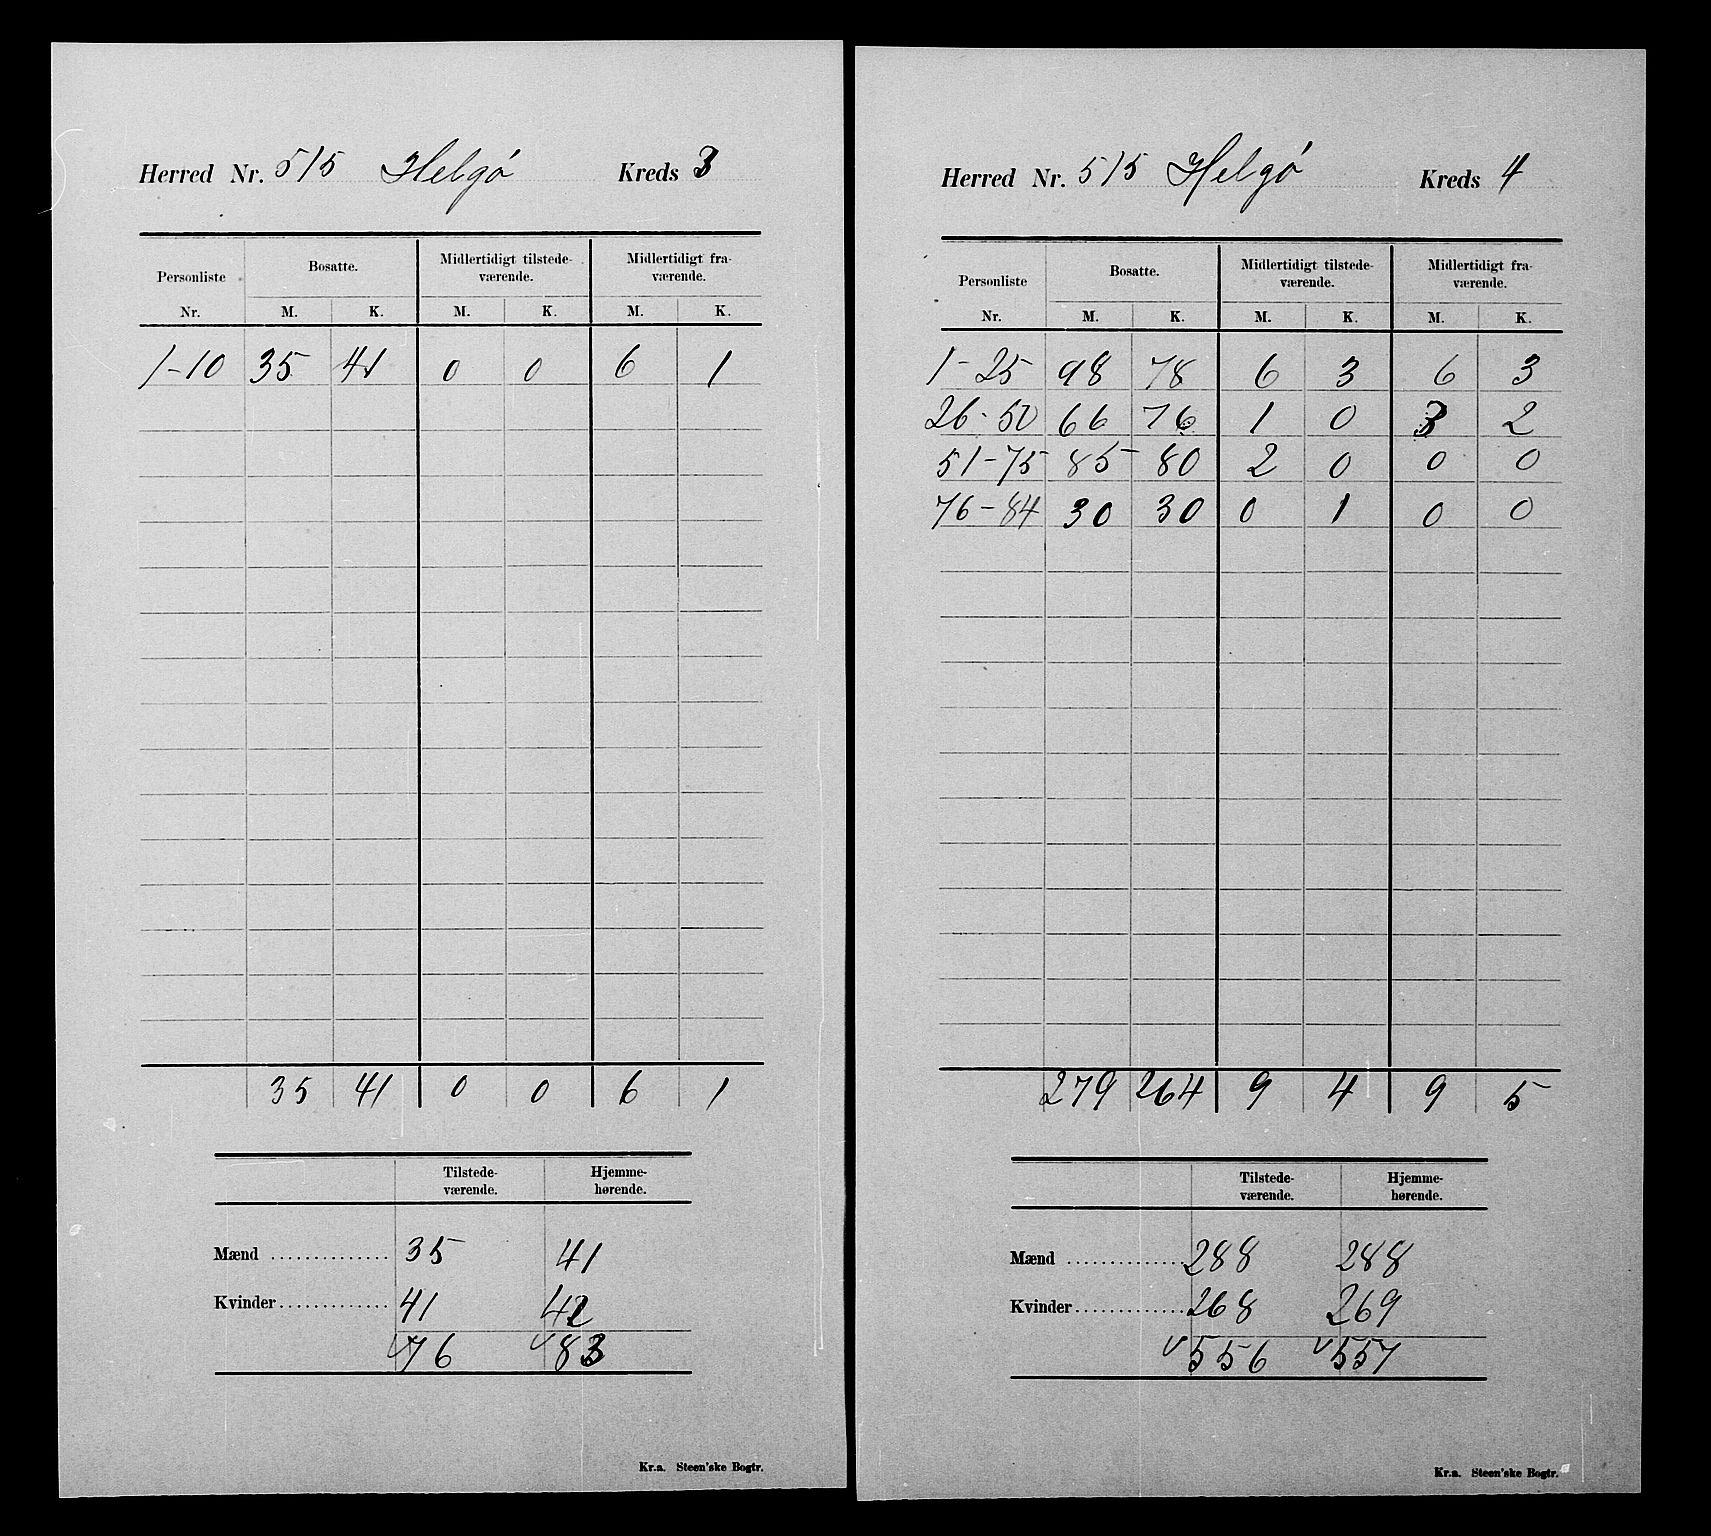 Herred Nr. 515 Helgö Kreds 3
Personliste Bosatte. Midlertidigt tilstede- Midlertidigt fra-
værende. værende.
Nr. M. K. M. K. M. K.
1-10 35 41 0 0 6 1
35 41 0 0 6 1
Tilstede- Hjemme-
værende. hørende.
Mænd .............. 35 41
Kvinder.............. 41 42
76 83
Kr.a. Steen'ske Bogtr.
Herred Nr. 515 Helgö Kreds 4
Personliste Bosatte. Midlertidigt tilstede- Midlertidigt fra-
værende. værende.
Nr. M. K. M. K. M. K.
1-25 98 78 6 3 6 3
26-50 66 76 1 0 3 2
51-75 85 80 2 0 0 0
76-84 30 30 0 1 0 0
279 264 9 4 9 5
Tilstede- Hjemme-
værende. hørende.
Mænd .............. 288 288
Kvinder.............. 268 269
556 557
Kr.a. Steen'ske Bogtr.